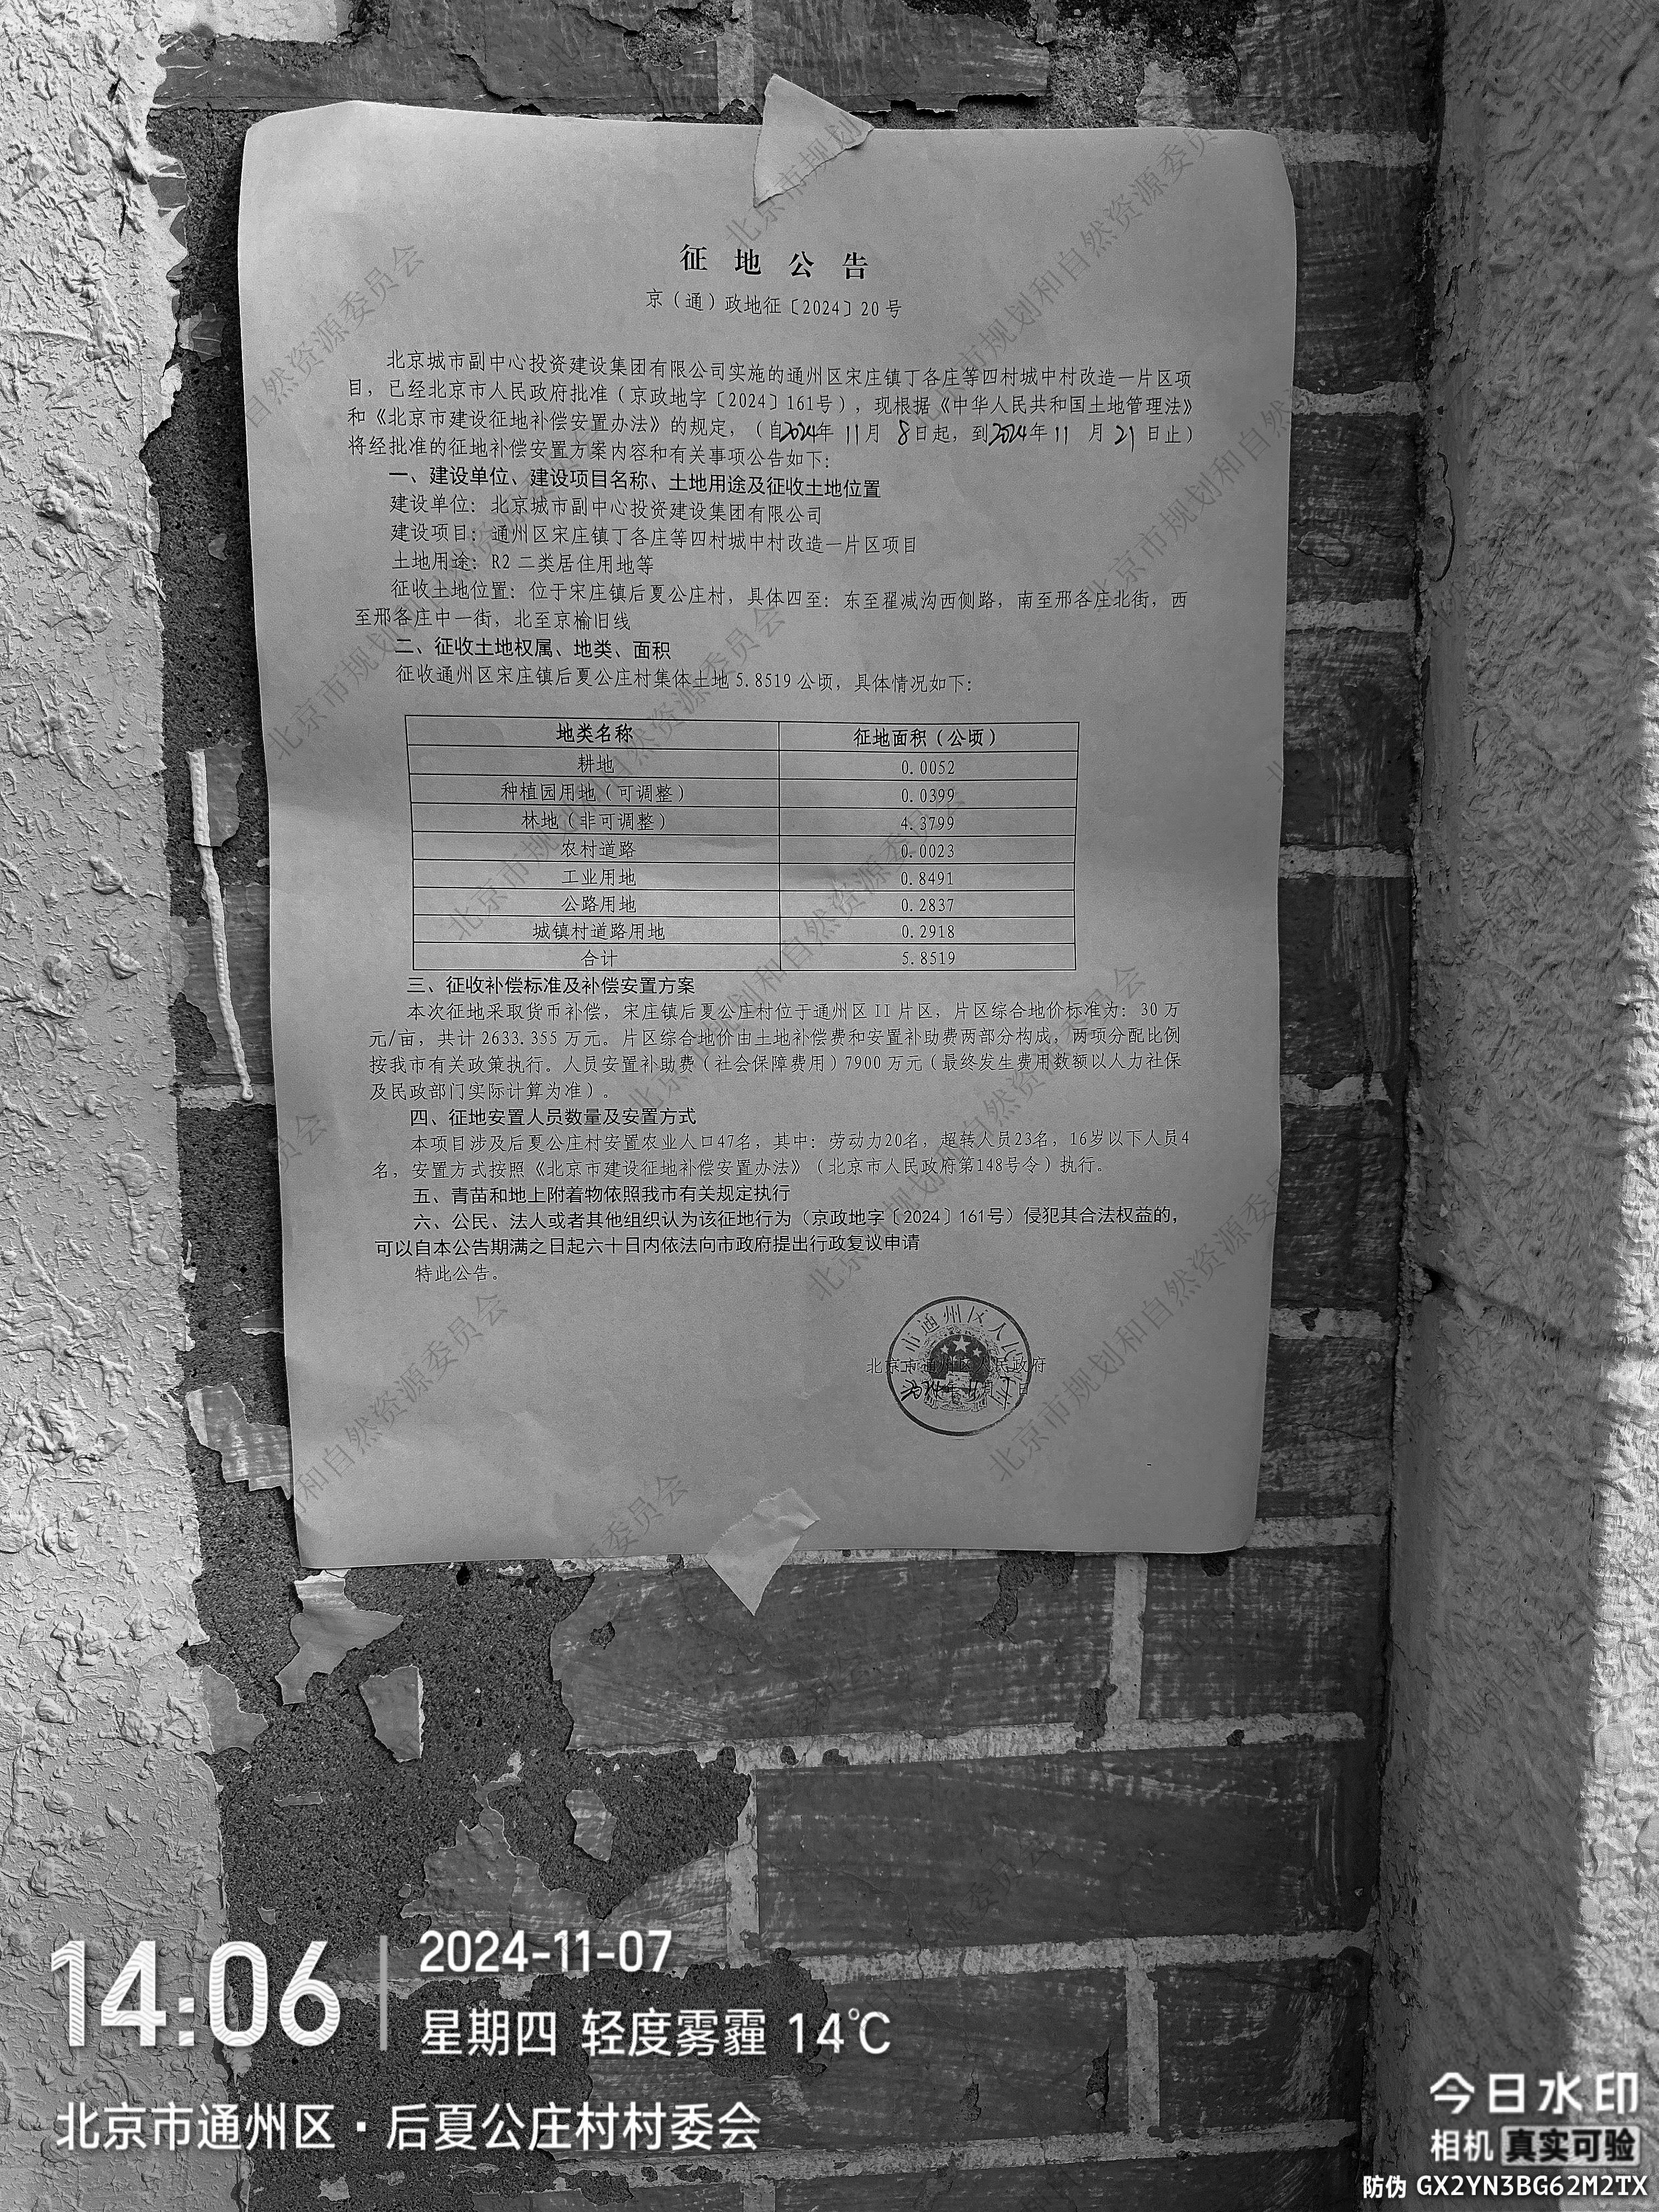 征地公告
京（通）政地征〔2024〕20号
北京城市副中心投资建设集团有限公司实施的通州区宋庄镇丁各庄等四村城中村改造一片区项
目，已经北京市人民政府批准（京政地字〔2024〕161号），现根据《中华人民共和国土地管理法》
和《北京市建设征地补偿安置办法》的规定，（自2024年11月8日起，到2024年11月21日止）
将经批准的征地补偿安置方案内容和有关事项公告如下：
一、建设单位、建设项目名称、土地用途及征收土地位置
建设单位：北京城市副中心投资建设集团有限公司
建设项目：通州区宋庄镇丁各庄等四村城中村改造一片区项目
土地用途：R2 二类居住用地等
征收土地位置：位于宋庄镇后夏公庄村，具体四至：东至翟减沟西侧路，南至邢各庄北街，西
至邢各庄中一街，北至京榆旧线
二、征收土地权属、地类、面积
征收通州区宋庄镇后夏公庄村集体土地 5.8519 公顷，具体情况如下：
地类名称 征地面积（公顷）
耕地 0.0052
种植园用地（可调整） 0.0399
林地（非可调整） 4.3799
农村道路 0.0023
工业用地 0.8491
公路用地 0.2837
城镇村道路用地 0.2918
合计 5.8519
三、征收补偿标准及补偿安置方案
本次征地采取货币补偿，宋庄镇后夏公庄村位于通州区 II 片区，片区综合地价标准为：30 万
元/亩，共计 2633.355 万元。片区综合地价由土地补偿费和安置补助费两部分构成，两项分配比例
按我市有关政策执行。人员安置补助费（社会保障费用）7900 万元（最终发生费用数额以人力社保
及民政部门实际计算为准）。
四、征地安置人员数量及安置方式
本项目涉及后夏公庄村安置农业人口47名，其中：劳动力20名，超转人员23名，16岁以下人员4
名，安置方式按照《北京市建设征地补偿安置办法》（北京市人民政府第148号令）执行。
五、青苗和地上附着物依照我市有关规定执行
六、公民、法人或者其他组织认为该征地行为（京政地字〔2024〕161号）侵犯其合法权益的，
可以自本公告期满之日起六十日内依法向市政府提出行政复议申请
特此公告。
北京市通州区人民政府
2024年11月7日
14:06
2024-11-07
星期四 轻度雾霾 14℃
北京市通州区·后夏公庄村村委会
今日水印
相机 真实可验
防伪 GX2YN3BG62M2TX
北京市规划和自然资源委员会